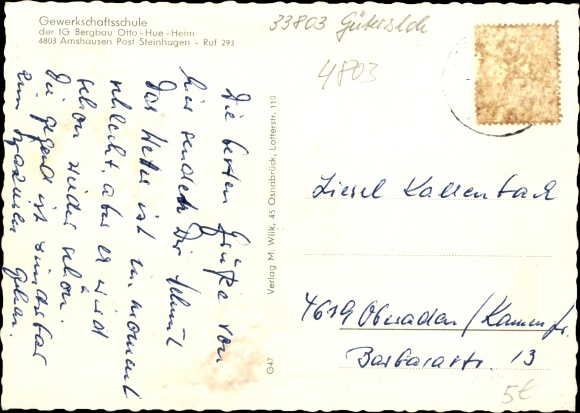 Gewerkschaftsschule
der IG Bergbau Otto-Hue-Heim
4803 Amshausen Post Steinhagen - Ruf 293
33803 Gütersloh
4803
Die besten Grüße von
hier sendet Dir Helmut
Das Wetter ist im moment
schlecht, aber es wird
schon wieder schön.
Die Gegend ist wunderbar
zum spazieren gehen.
Verlag M. Wilk, 45 Osnabrück, Lotterstr. 110
G47
Liesel Kaltenback
4619 Oberaden / Kamen
Barbarastr. 13
5€